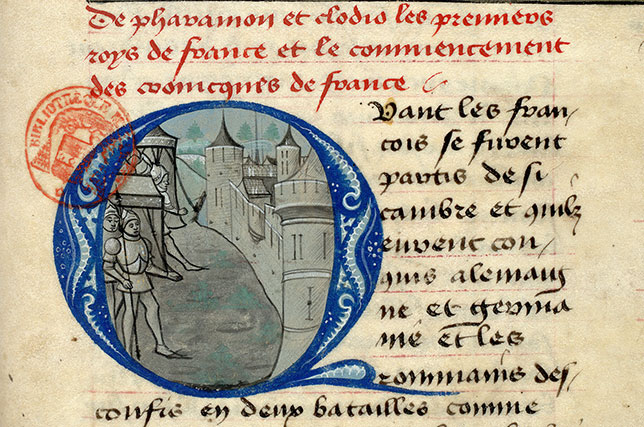 De pharamon et clodio les premiers
roys de france et le commencement
des cronicques de france
Quant les fran-
cois se furent
partis de si
cambre et quilz
eurent con-
quis alemaig
ne et germa
nie Et les
rommains des-
confis en deux batailles comme
BIBLIOTHE